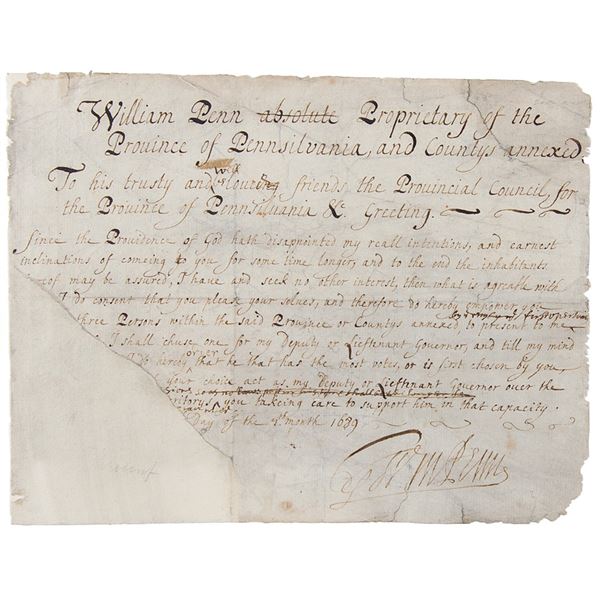 William Penn absolute Proprietary of the
Province of Pennsilvania, and Countys annexed
To his trusty and loving friends the Provincial Council for
the Province of Pennsilvania &c Greeting.
Since the Providence of God hath disapointed my reall intentions, and earnest
inclinations of comeing to you for some time longer, and to the end the inhabitants
may be assured, I have and seek no other interest, then what is agreable with
I do consent that you please your selves, and therefore do hereby empower you
three Persons within the said Province or Countys annexed, to present to me
I shall chuse one for my Deputy or Lieftenant Governor, and till my mind
I do hereby that he that has the most votes, or is first chosen by you
your choice act as my Deputy or Lieftenant Governor over the
you takeing care to support him in that capacity.
Day of the month 1689
Wm Penn